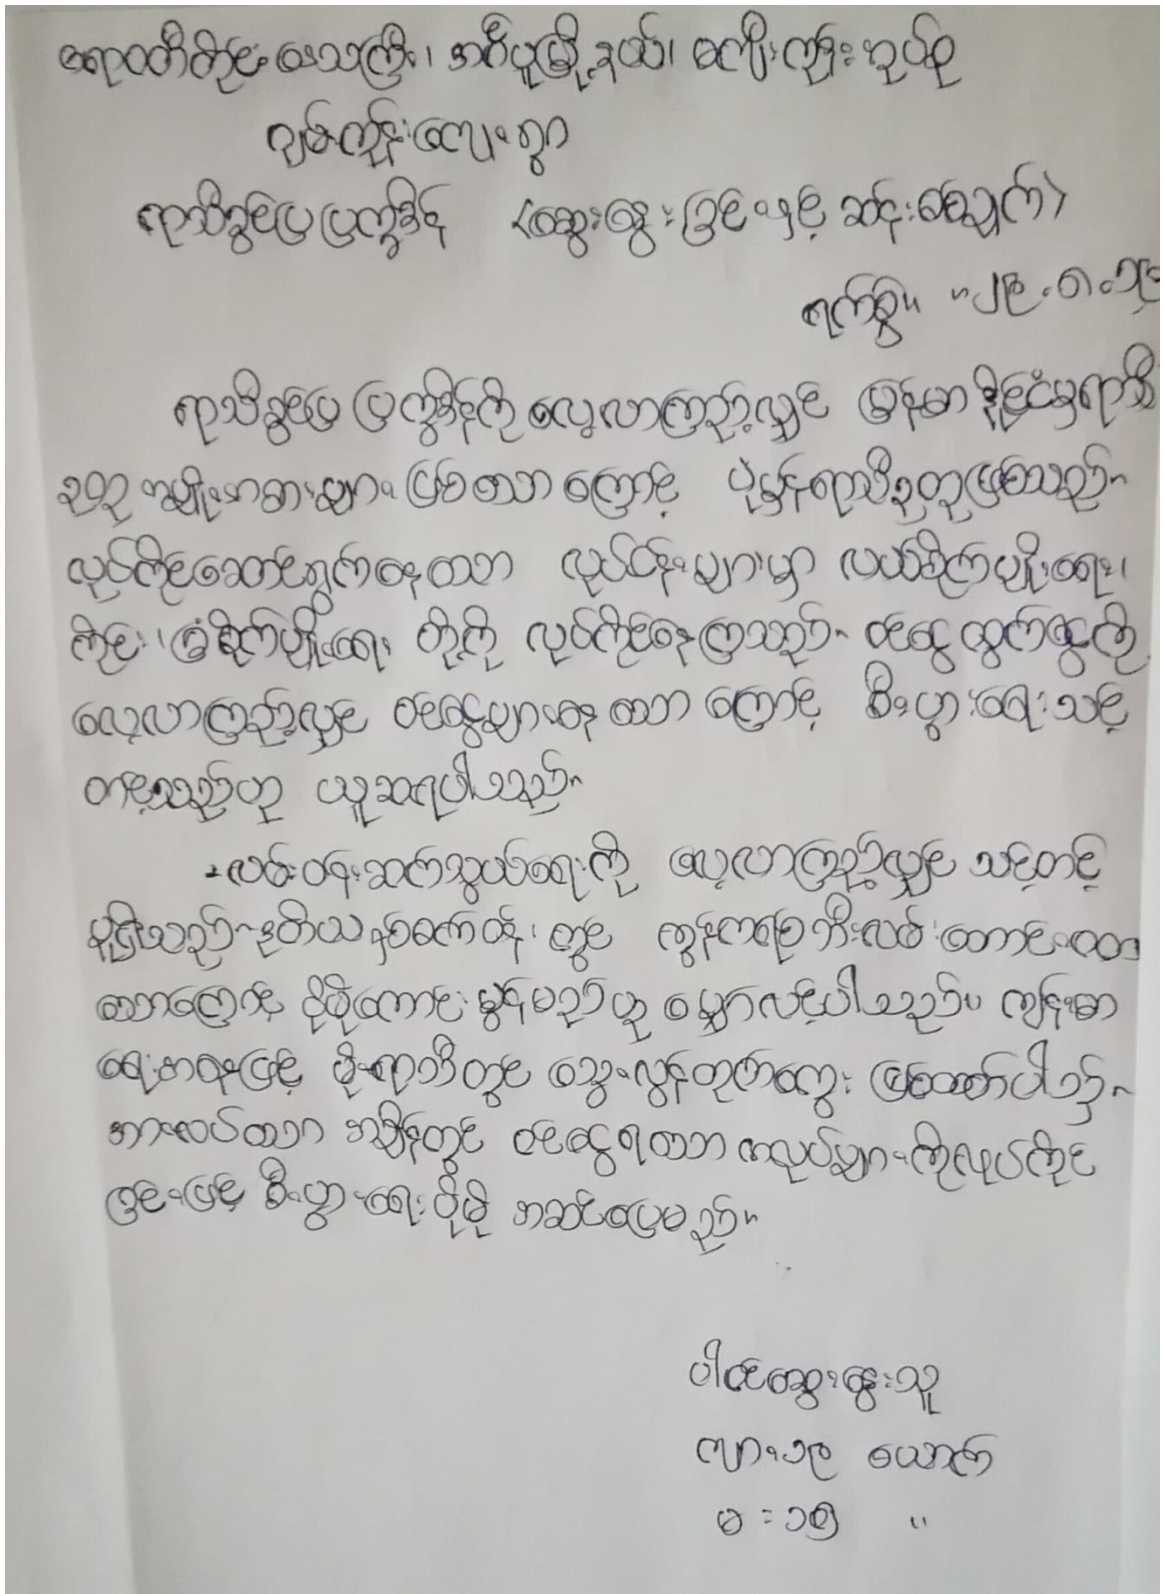 ဧရာဝတီတိုင်းဒေသကြီး၊ အင်္ဂပူမြို့နယ်၊ မကျီးကျွန်းအုပ်စု
ဂျမ်းကျွန်းလေးရွာ
ရာသီခွင်ပြပြက္ခဒိန် (ဆွေးနွေးခြင်းနှင့် ဆန်းစစ်ချက်)
ရက်စွဲ။ ။၂၉.၈.၁၉
ရာသီခွင်ပြ ပြက္ခဒိန်ကို လေ့လာကြည့်လျှင် မြန်မာနိုင်ငံမှရာသီ
ဥတု အမျိုးအစားများ ဖြစ်သော ကြောင့် ပုံမှန်ရာသီဥတုဖြစ်သည်။
လုပ်ကိုင်ဆောင်ရွက်နေသော လုပ်ငန်းများမှာ လယ်စိုက်ပျိုးရေး၊
ကိုင်း၊ ခြံစိုက်ပျိုးရေး တို့ကို လုပ်ကိုင်နေကြသည်။ ဝင်ငွေ ထွက်ငွေကို
လေ့လာကြည့်လျှင် ဝင်ငွေများနေသော ကြောင့် စီးပွားရေး သင့်
တင့်သည်ဟု ယူဆရပါသည်။
လမ်းပန်းဆက်သွယ်ရေးကို လေ့လာကြည့်လျှင် သင့်တင့်
မှုရှိသည်။ ဒုတိယ နှစ်ဝက်ထဲ၊ တွင် ကွန်ကရစ်ဘီးလမ်း တောင်းထား
သောကြောင့် ပိုမိုကောင်းမွန်မည်ဟု မျှော်လင့်ပါသည်။ ကျန်းမာ
ရေးအနေဖြင့် မိုးရာသီတွင် သွေးလွန်တုတ်ကွေး ဖြစ်တတ်ပါသည်။
အားလပ်သော အချိန်တွင် ဝင်ငွေရသော အလုပ်များကိုလုပ်ကိုင်
ခြင်းဖြင့် စီးပွားရေး ပိုမို အဆင်ပြေမည်။
ပါဝင်ဆွေးနွေးသူ
ကျား ၁၉ ယောက်
မ = ၁၅ "